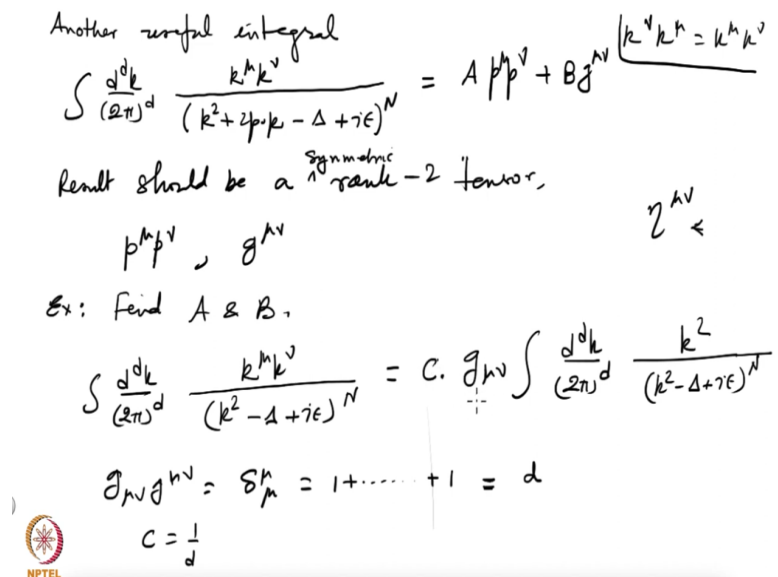 Another useful integral
∫ d^dk/(2π)^d k^μk^ν/(k^2+2p·k - Δ + iε)^N = A p^μp^ν + B g^{μν} k^νk^μ = k^μk^ν
Result should be a symmetric rank-2 tensor,
η^{μν}
p^μp^ν, g^{μν}
Ex: Find A & B.
∫ d^dk/(2π)^d k^μk^ν/(k^2 - Δ + iε)^N = C. g_{μν} ∫ d^dk/(2π)^d k^2/(k^2 - Δ + iε)^N
g_{μν} g^{μν} = δ^μ_μ = 1+......+1 = d
C = 1/d
NPTEL